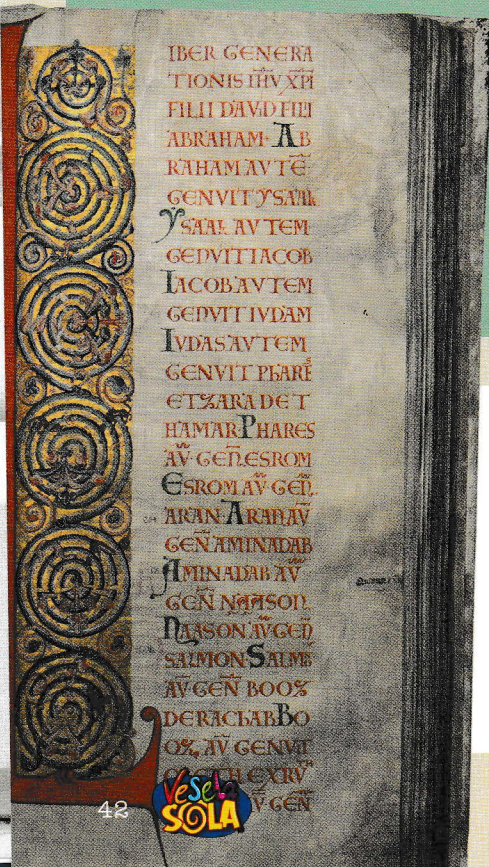 IBER GENERA
TIONIS IHV XPI
FILII DAVID FILII
ABRAHAM· AB
RAHAM AVTE
GENVIT YSAAK
YSAAK AVTEM
GENVIT IACOB
IACOB AVTEM
GENVIT IVDAM
IVDAS AVTEM
GENVIT PHARE
ET ZARA DE T
HAMAR PHARES
AV GEN ESROM
ESROM AV GEN.
ARAN ARAN AV
GEN AMINADAB
AMINADAB AV
GEN NAASON.
NAASON AV GEN
SALMON SALM
AV GEN BOOZ
DE RACHAB BO
OZ, AV GENVIT
EX RV
V GEN
42
Vesela
SOLA